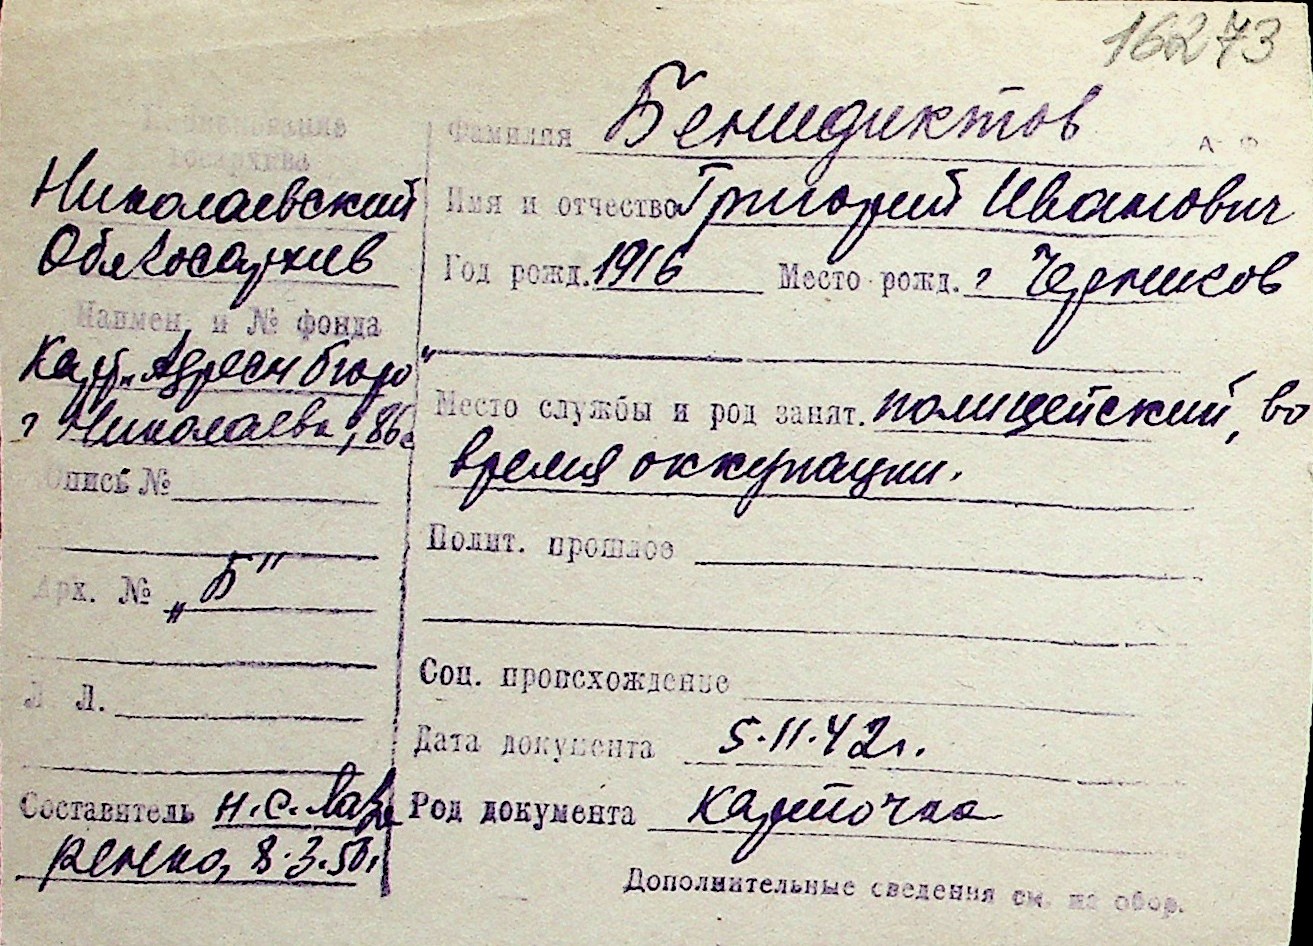 16273
Наименование
госархива
Николаевский
Облгосархив
Наимен. и № фонда
Карт. „Адресн бюро"
г Николаева, 86
Опись №
Арх. № „Б"
Л Л.
Составитель Н.С. Лаза
ренко, 8.3.50г
Фамилия Бенидиктов
А-Ф
Имя и отчество Григорий Иванович
Год рожд. 1916 Место рожд. г Черников
Место службы и род занят. полицейский, во
время оккупации.
Полит. прошлое
Соц. происхождение
Дата документа 5.11.42г.
Род документа карточка
Дополнительные сведения см. на обор.